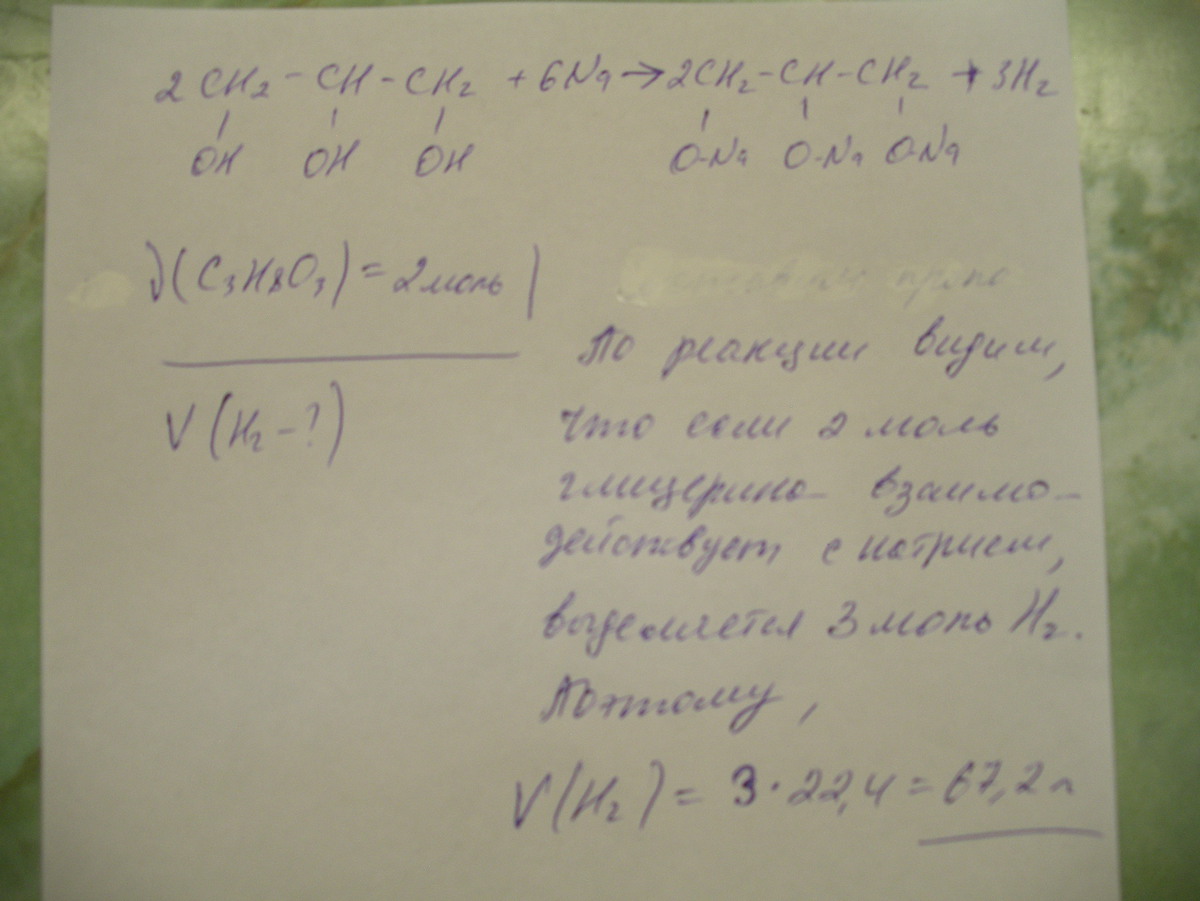 2CH₂ - CH - CH₂ + 6Na → 2CH₂ - CH - CH₂ + 3H₂
OH OH OH O-Na O-Na O-Na
ν(C₃H₈O₃) = 2 моль
V(H₂ - ?)
По реакции видим,
что если 2 моль
глицерина взаимо-
действует с натрием,
выделяется 3 моль H₂.
Поэтому,
V(H₂) = 3 · 22,4 = 67,2 л